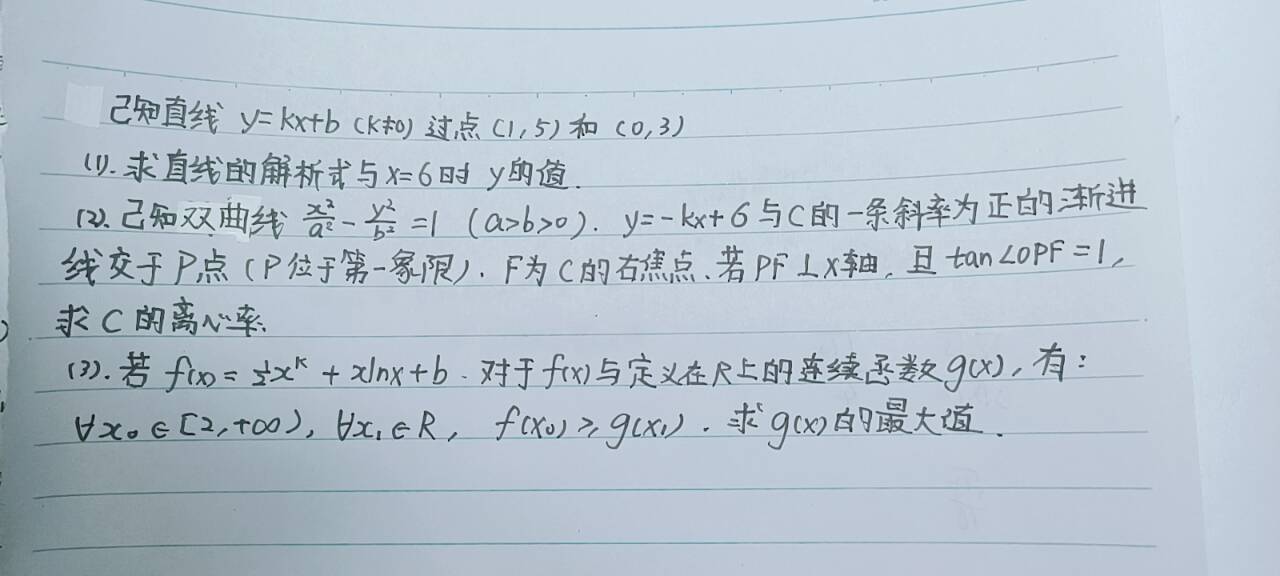 已知直线 y=kx+b (k≠0) 过点 (1,5) 和 (0,3)
(1). 求直线的解析式与x=6时 y的值.
(2). 已知双曲线 x²/a² - y²/b² =1 (a>b>0). y=-kx+6与C的一条斜率为正的渐进
线交于P点 (P位于第一象限). F为C的右焦点. 若PF⊥x轴, 且 tan∠OPF=1,
求C的离心率.
(3). 若 f(x)=½x^k + xlnx+b. 对于f(x)与定义在R上的连续函数g(x), 有:
∀x₀∈[2,+∞), ∀x₁∈R, f(x₀)≥g(x₁). 求g(x)的最大值.